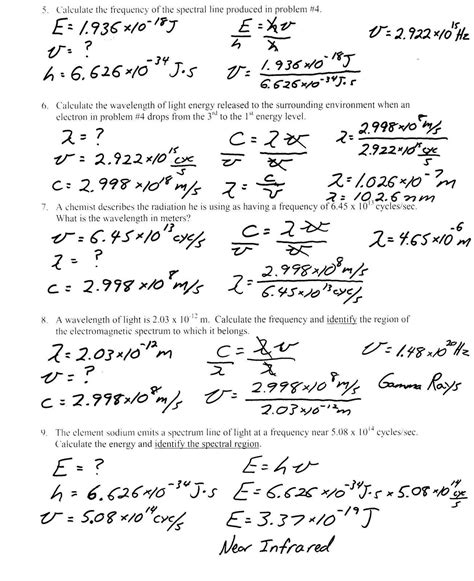 5. Calculate the frequency of the spectral line produced in problem #4.
E = 1.936 x10^-18 J
E = hν
h h
ν = 2.922 x10^15 Hz
ν = ?
h = 6.626 x10^-34 J·s
ν = 1.936 x10^-18 J
6.626 x10^-34 J·s
6. Calculate the wavelength of light energy released to the surrounding environment when an
electron in problem #4 drops from the 3rd to the 1st energy level.
λ = ?
C = λν
ν ν
λ = 2.998 x10^8 m/s
2.922 x10^15 cyc/s
ν = 2.922 x10^15 cyc/s
C = 2.998 x10^8 m/s
λ = C/ν
λ = 1.026 x10^-7 m
λ = 102.6 nm
7. A chemist describes the radiation he is using as having a frequency of 6.45 x 10^13 cycles/sec.
What is the wavelength in meters?
ν = 6.45 x10^13 cyc/s
C = λν
ν ν
λ = 4.65 x10^-6 m
λ = ?
C = 2.998 x10^8 m/s
λ = 2.998 x10^8 m/s
6.45 x10^13 cyc/s
8. A wavelength of light is 2.03 x 10^-12 m. Calculate the frequency and identify the region of
the electromagnetic spectrum to which it belongs.
λ = 2.03 x10^-12 m
C = λν
λ λ
ν = 1.48 x10^20 Hz
ν = ?
C = 2.998 x10^8 m/s
ν = 2.998 x10^8 m/s
2.03 x10^-12 m
Gamma Rays
9. The element sodium emits a spectrum line of light at a frequency near 5.08 x 10^14 cycles/sec.
Calculate the energy and identify the spectral region.
E = ?
E = hν
h = 6.626 x10^-34 J·s
E = 6.626 x10^-34 J·s x 5.08 x10^14 cyc/s
ν = 5.08 x10^14 cyc/s
E = 3.37 x10^-19 J
Near Infrared